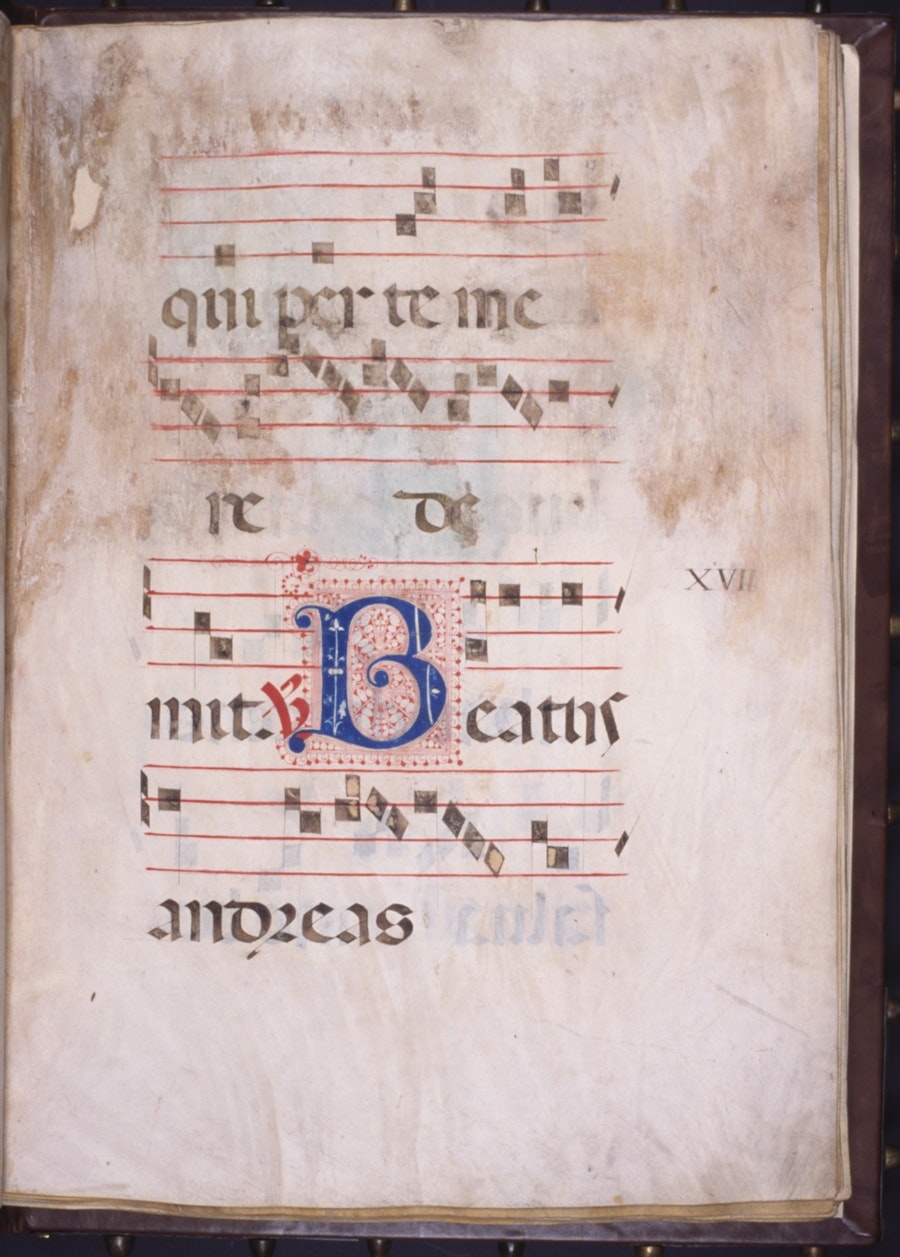 qui per te me
re de
XVII
mit. ℟ Beatus
andreas